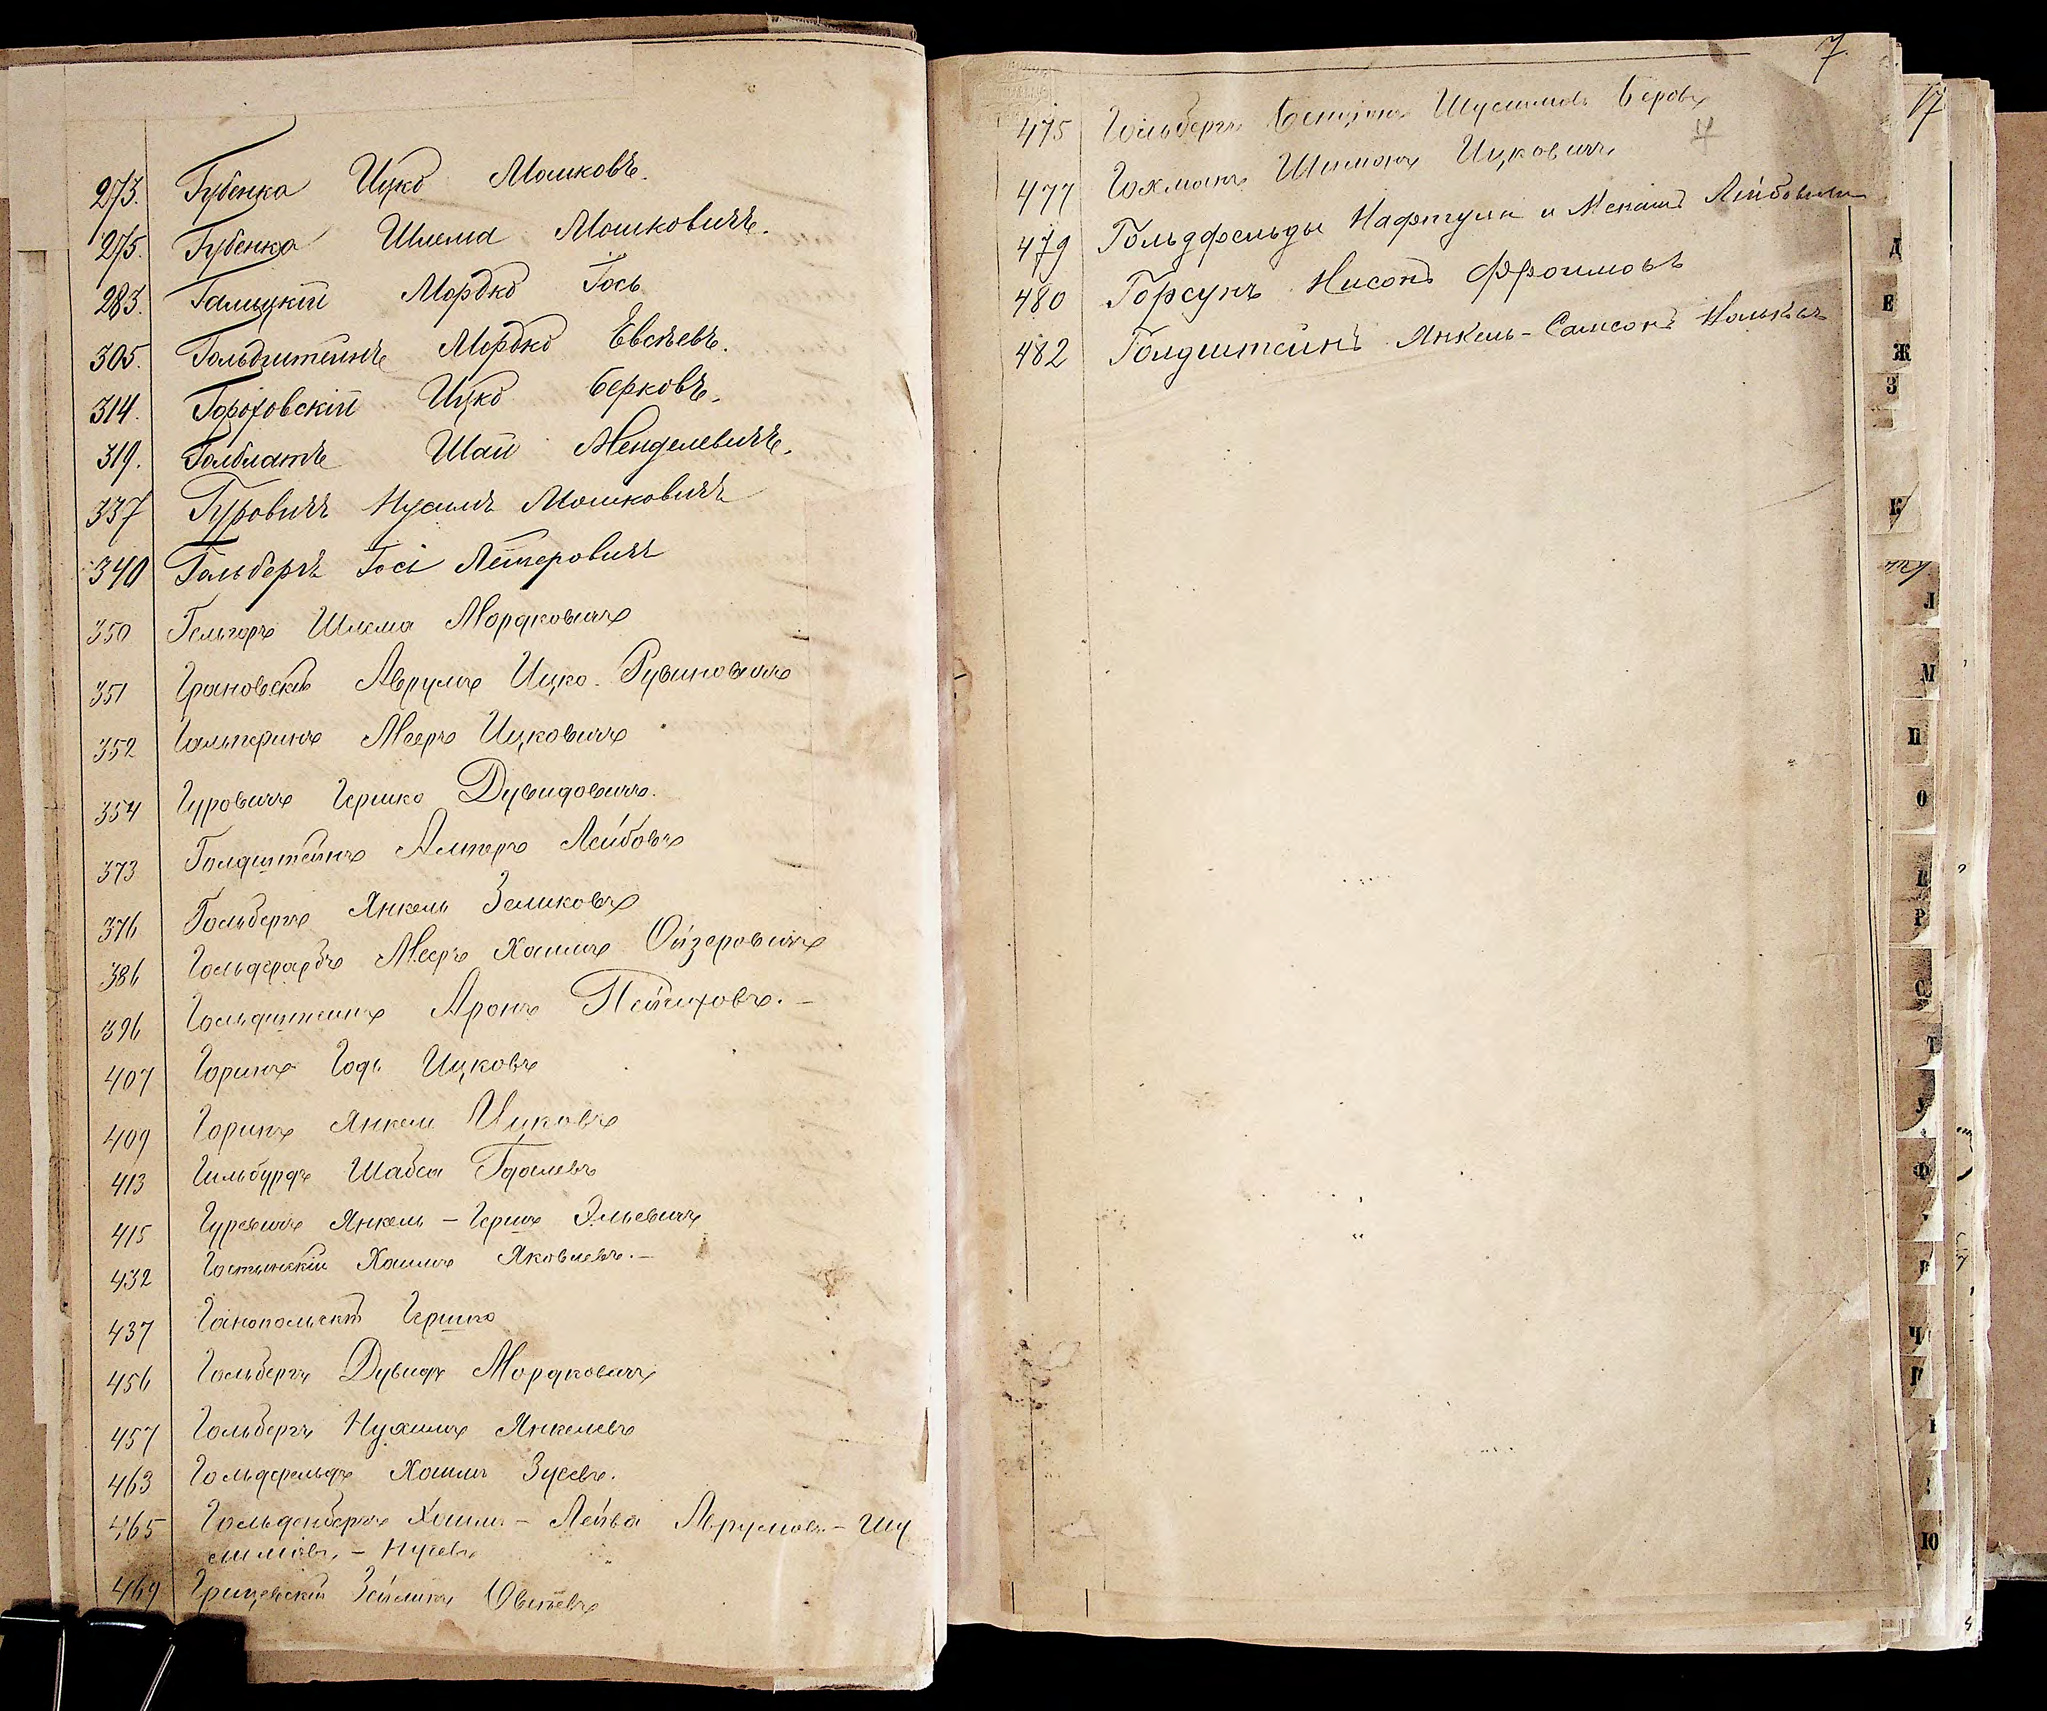 273. Губенко Ицко Мошковъ.
275. Губенко Шлема Мошковичъ.
283. Галицкій Мордко Іось
305. Гольдштейнъ Мордко Евсѣевъ.
314. Гороховскій Ицко Берковъ.
319. Голблатъ Шая Менделевичъ.
337 Гуровичъ Нусимъ Мошковичъ
340 Гольбергъ Іось Лейзеровичъ
350 Шлема Мордковичъ
351 Грановскій Аврумъ Ицко-Рувиновичъ
352 Гальперинъ Мееръ Ицковичъ
354 Гуровичъ Гершко Дувидовичъ.
373 Голдштейнъ Алтеръ Лейбовъ
376 Гольбергъ Янкель Зеликовъ
386 Гольдфарбъ Мееръ Хаимъ Ойзеровичъ
396 Гольдштейнъ Аронъ Пейсиховъ. -
407 Горинъ Годь Ицковъ
409 Горинъ Янкель Ицковъ
413 Гильбурдъ Шабса Гдалевъ
415 Гуревичъ Янкель - Гершъ Эльевичъ
432 Гостынскій Хаимъ Яковлевъ. -
437 Ганопольскій Гершко
456 Гольбергъ Дувидъ Мордковичъ
457 Гольбергъ Нухимъ Янкелевъ
463 Гольдфельдъ Хаимъ Зусевъ.
465 Гольденбергъ Хаимъ - Лейба Аврумовъ - Шу
лимовъ - Нусевъ
469 Грищевскій Зейликъ Овшіевъ
7.
475 Гольбергъ Бенціонъ Шулимовъ Беровъ
477 Гохманъ Шимонъ Ицковичъ
479 Гольдфельды Нафтула и Менаше Лейбовичи
480 Горсунъ Нисонъ Фроимовъ
482 Голдштейнъ Янкель-Самсонъ
17
Д
Е
Ж
З
К
Л
М
Н
О
П
Р
С
Т
У
Ф
Ч
Ю